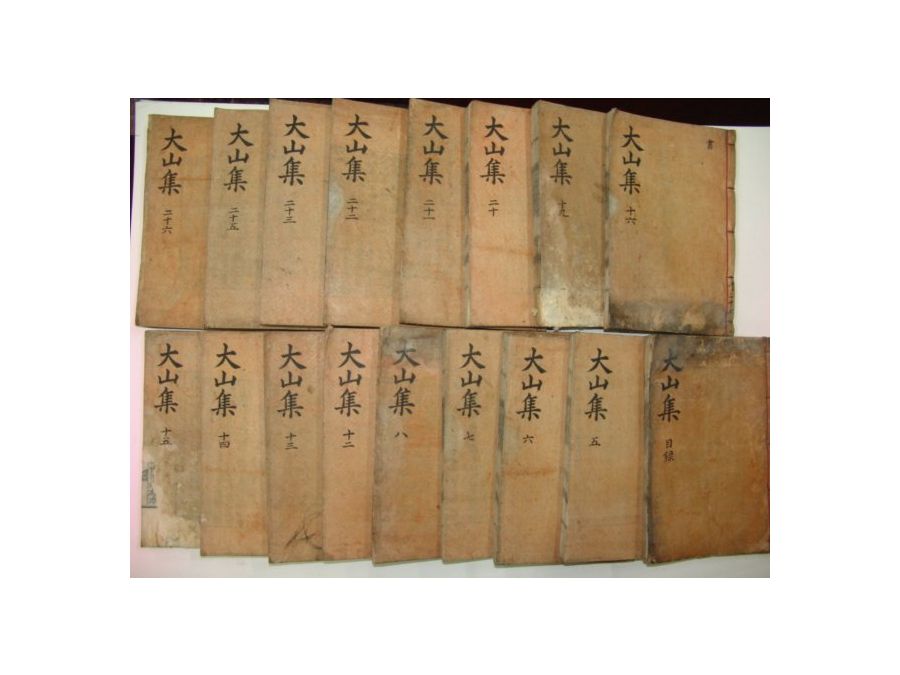 大山集 十六
書
大山集 十九
大山集 二十
大山集 二十一
大山集 二十二
大山集 二十三
大山集 二十五
大山集 二十六
大山集 目錄
大山集 五
大山集 六
大山集 七
大山集 八
大山集 十二
大山集 十三
大山集 十四
大山集 十五